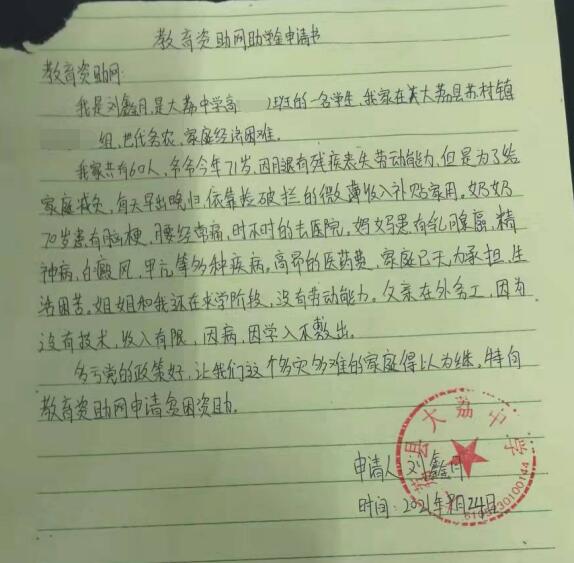 教育资助网助学金申请书
教育资助网:
我是刘鑫月,是大荔中学高 班的一名学生,我家在大荔县苏村镇
组,世代务农,家庭经济困难。
我家共有6口人,爷爷今年71岁,因眼有残疾丧失劳动能力,但是为了给
家庭减负,每天早出晚归,依靠捡破烂的微薄收入补贴家用。奶奶
70岁患有脑梗,腰经常痛,时不时的去医院。妈妈患有乳腺癌,精
神病,白癜风,甲亢等多种疾病。高昂的医药费,家庭已无力承担,生
活困苦。姐姐和我还在求学阶段,没有劳动能力。父亲在外务工,因为
没有技术,收入有限,因病,因学入不敷出。
多亏党的政策好,让我们这个多灾多难的家庭得以为继。特向
教育资助网申请贫困资助。
县大荔中学
申请人:刘鑫月
时间:2021年 月24日